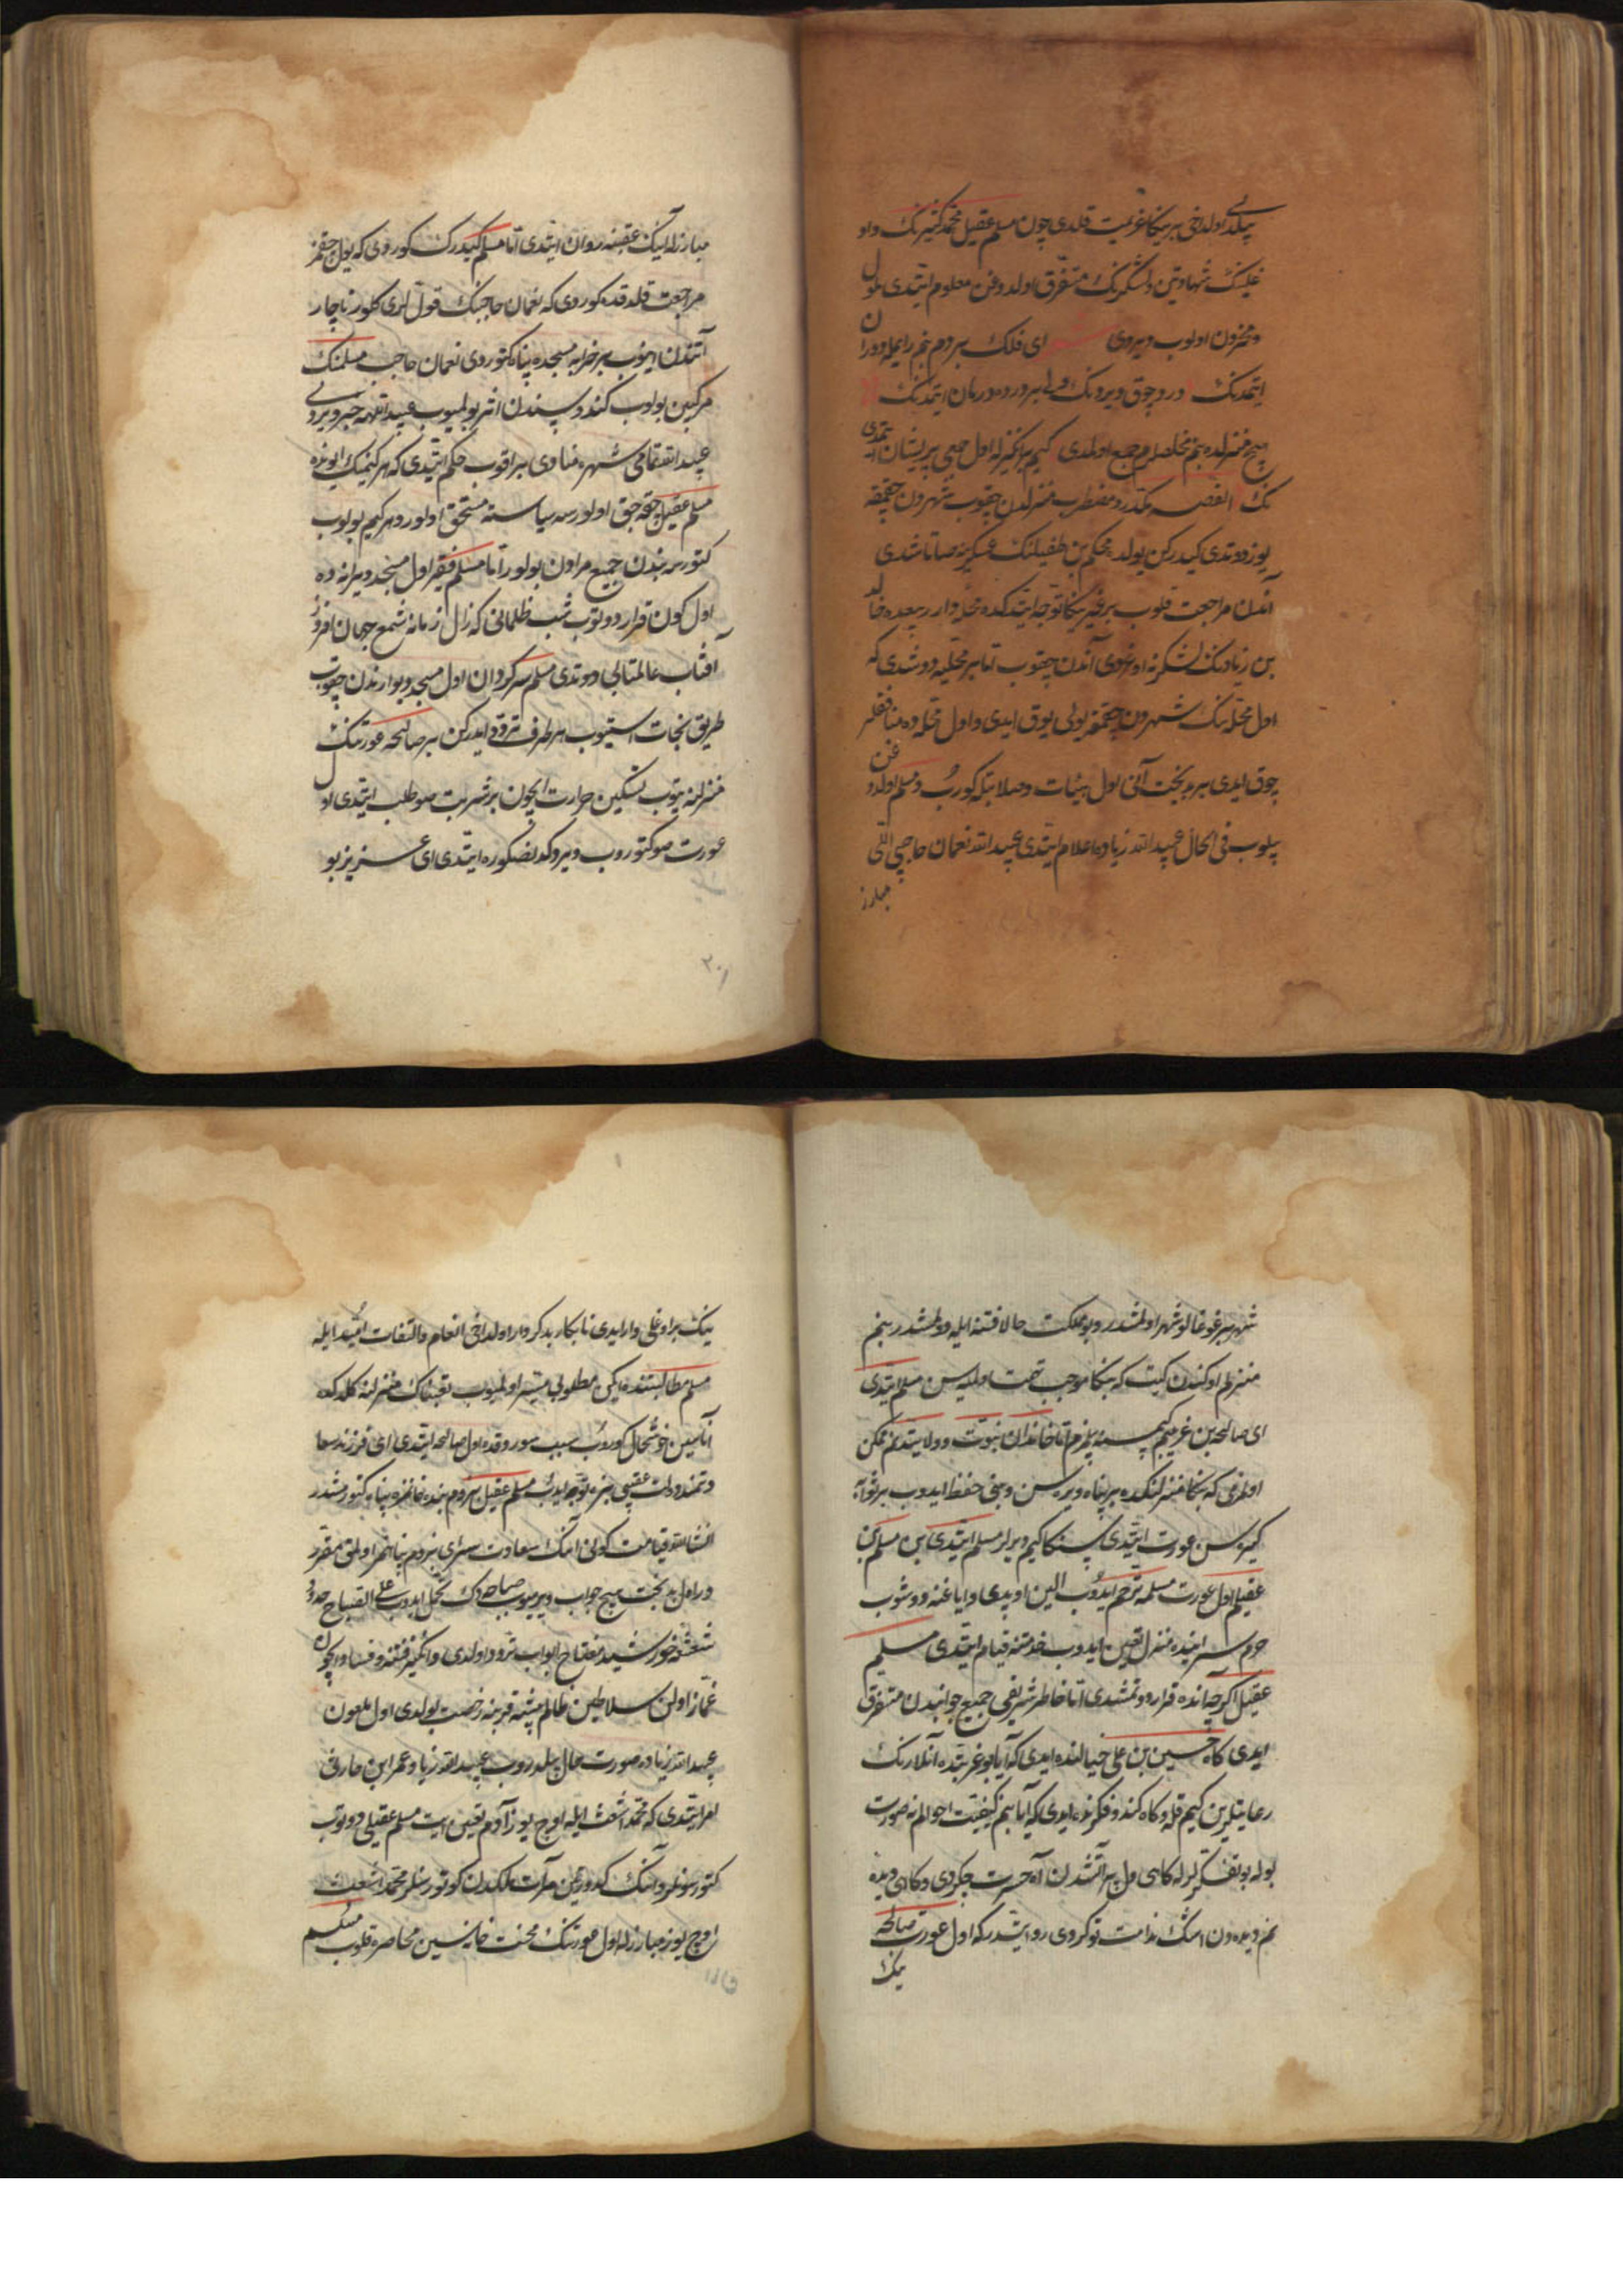 بیلدی اولداخی بیر یڭا عزیمت قلدی چون مسلم عقیل محمد کثیرنڭ و اوغ
غلینڭ شهادتین و لشکرینڭ متفرق اولدوغن معلوم ایتدی ملول
و محزون اولوب دیردی ای فلک بیر دم بنم رایمله دوران
ایتمدنڭ درد چوق ویردنڭ ولی بیر درده درمان ایتمدنڭ
هیچ منزلده بنم مخلصلرم جمع اولدی کیم یا نکیز له اول جمعی پریشان ایتمدی
نڭ القصه مکدر و مضطرب منزلدن چقوب شهردن چقمقه
یوز دوتدی کیدرکن یولده محکم بن طفیلنڭ عسکرینه صاتاشدی
آندن مراجعت قلوب بر غیر یڭا توجه ایتدکده محله دار ربیعده خالد
بن زیادنڭ لشکرینه اوغردی آندن چقوب تا بیر محلیه دوشدی که
اول محله نڭ شهردن چقمقه یولی یوق ایدی و اول محله ده منافقلر
چوق ایدی بیر بدبخت آنی اول هیئات و صلابتله کوروب مسلم اولدوغن
بیلوب فی الحال عبیدالله زیاده اعلام ایتدی عبیدالله نعمان حاجبی اللی
مبارز
مبارزله آنڭ عقبینه روان ایتدی اما مسلم کیدرک کوردی که یول چقمز
مراجعت قلدقده کوردی که نعمان حاجبنڭ قول لری کلور ناچار
آتندن اینوب بیر خرابه مسجده پناه کتوردی نعمان حاجب مسلمنڭ
مرکبین بولوب کندوسندن اثر بولمیوب عبیدالله خبر ویردی
عبیدالله تمامی شهره منادی براقوب حکم ایتدی که هر کیمنڭ اوینده
مسلم عقیل چقه جق اولورسه سیاسته مستحق اولور و هر کیم بولوب
کتورسه بندن جمیع مرادن بولور اما مسلم فقیر اول مسجد ویرانه ده
اول کون قرار دوتوب شب ظلمانی که زال زمانه شمع جهان افروز
آفتاب عالمتابی دوتدی مسلم سرکردان اول مسجد دیوارندن چقوب
طریق نجات استیوب هر طرف تردد ایدرکن بیر صالحه عورتنڭ
منزلنه یتوب تسکین حرارت ایچون بر شربت صو طلب ایتدی اول
عورت صو کتوروب ویردکدنصکره ایتدی ای عزیز بو
۲۰۱
شهر بیر غوغالو شهر اولمشدر و بو مملکت حالا فتنه ایله دولمشدر بنم
منزلم اوکندن کیت که بڭا موجب تهمت اولمیسن مسلم ایتدی
ای صالحه بن غریبم کیمسنه یلمزم اما خاندان نبوت و ولایتدنم ممکن
اولمزمی که بڭا منزلنکده بیر پناه ویره سن و بنی حفظ ایدوب بر ثوابه
کیره سن عورت ایتدی سڭا کیم دیرلر مسلم ایتدی بن مسلم بن
عقیلم اول عورت مسلمه ترحم ایدوب الین اوپدی و ایاغنه دوشوب
حرم سراینده منزل تعیین ایدوب خدمتنه قیام ایتدی مسلم
عقیل اکرچه انده قرار دوتمشدی اما خاطر شریفی جمیع جوانبدن متفرق
ایدی کاه حسین بن علی خیالنده ایدی که آیا بو غربتده آنلارنڭ
رعایتلرین کیم قله و کاه کندو فکرنده ایدی که آیا بنم کیفیت احوالم نه صورت
بوله بو تفکرلر له کاهی دل پر آتشدن آه حسرت چکردی و کاهی دیده
نم دیده دن اشک ندامت توکردی روایتدر که اول عورت صالحه
ینڭ
ینڭ بر اوغلی وار ایدی نابکار بد کردار اولداخی انعام و التفات امید ایله
مسلم مطالبتنده ایکن مطلوبی میسر اولمیوب تعبناک منزلنه کلدکده
آناسین خوشحال کوروب سبب سوردقده اول صالحه ایتدی ای فرزند سعا
دتمند دولت عقبی بزه توجه ایدوب مسلم عقیل بو دم بنده خانمزه پناه کتورمشدر
انشاالله قیامت کونی آنڭ سعادت سرای بزه دم پناهمز اولمق مقرر
در اول بدبخت هیچ جواب ویرمیوب صباحه دک تحمل ایدوب علی الصباح
شعشعه خورشید مفتاح ابواب تردد اولدی و انکیز فتنه و فساد ایچون
غماز اولن سلاطین ظالم پیشه قربنه رخصت بولدی اول ملعون
عبیدالله زیاده صورت حالی بلدروب عبیدالله زیاد عمر ابن حارثی
امر ایتدی که محمد اشعث ایله اوچ یوز آدم تعیین ایت مسلم عقیلی دوتوب
کتورسونلر و آنڭ کدورتین مرآت ملکدن کوتورسنلر محمد اشعث
اوچ یوز مبارزله اول عورتنڭ محنت خانه سین محاصره قلوب مسلم